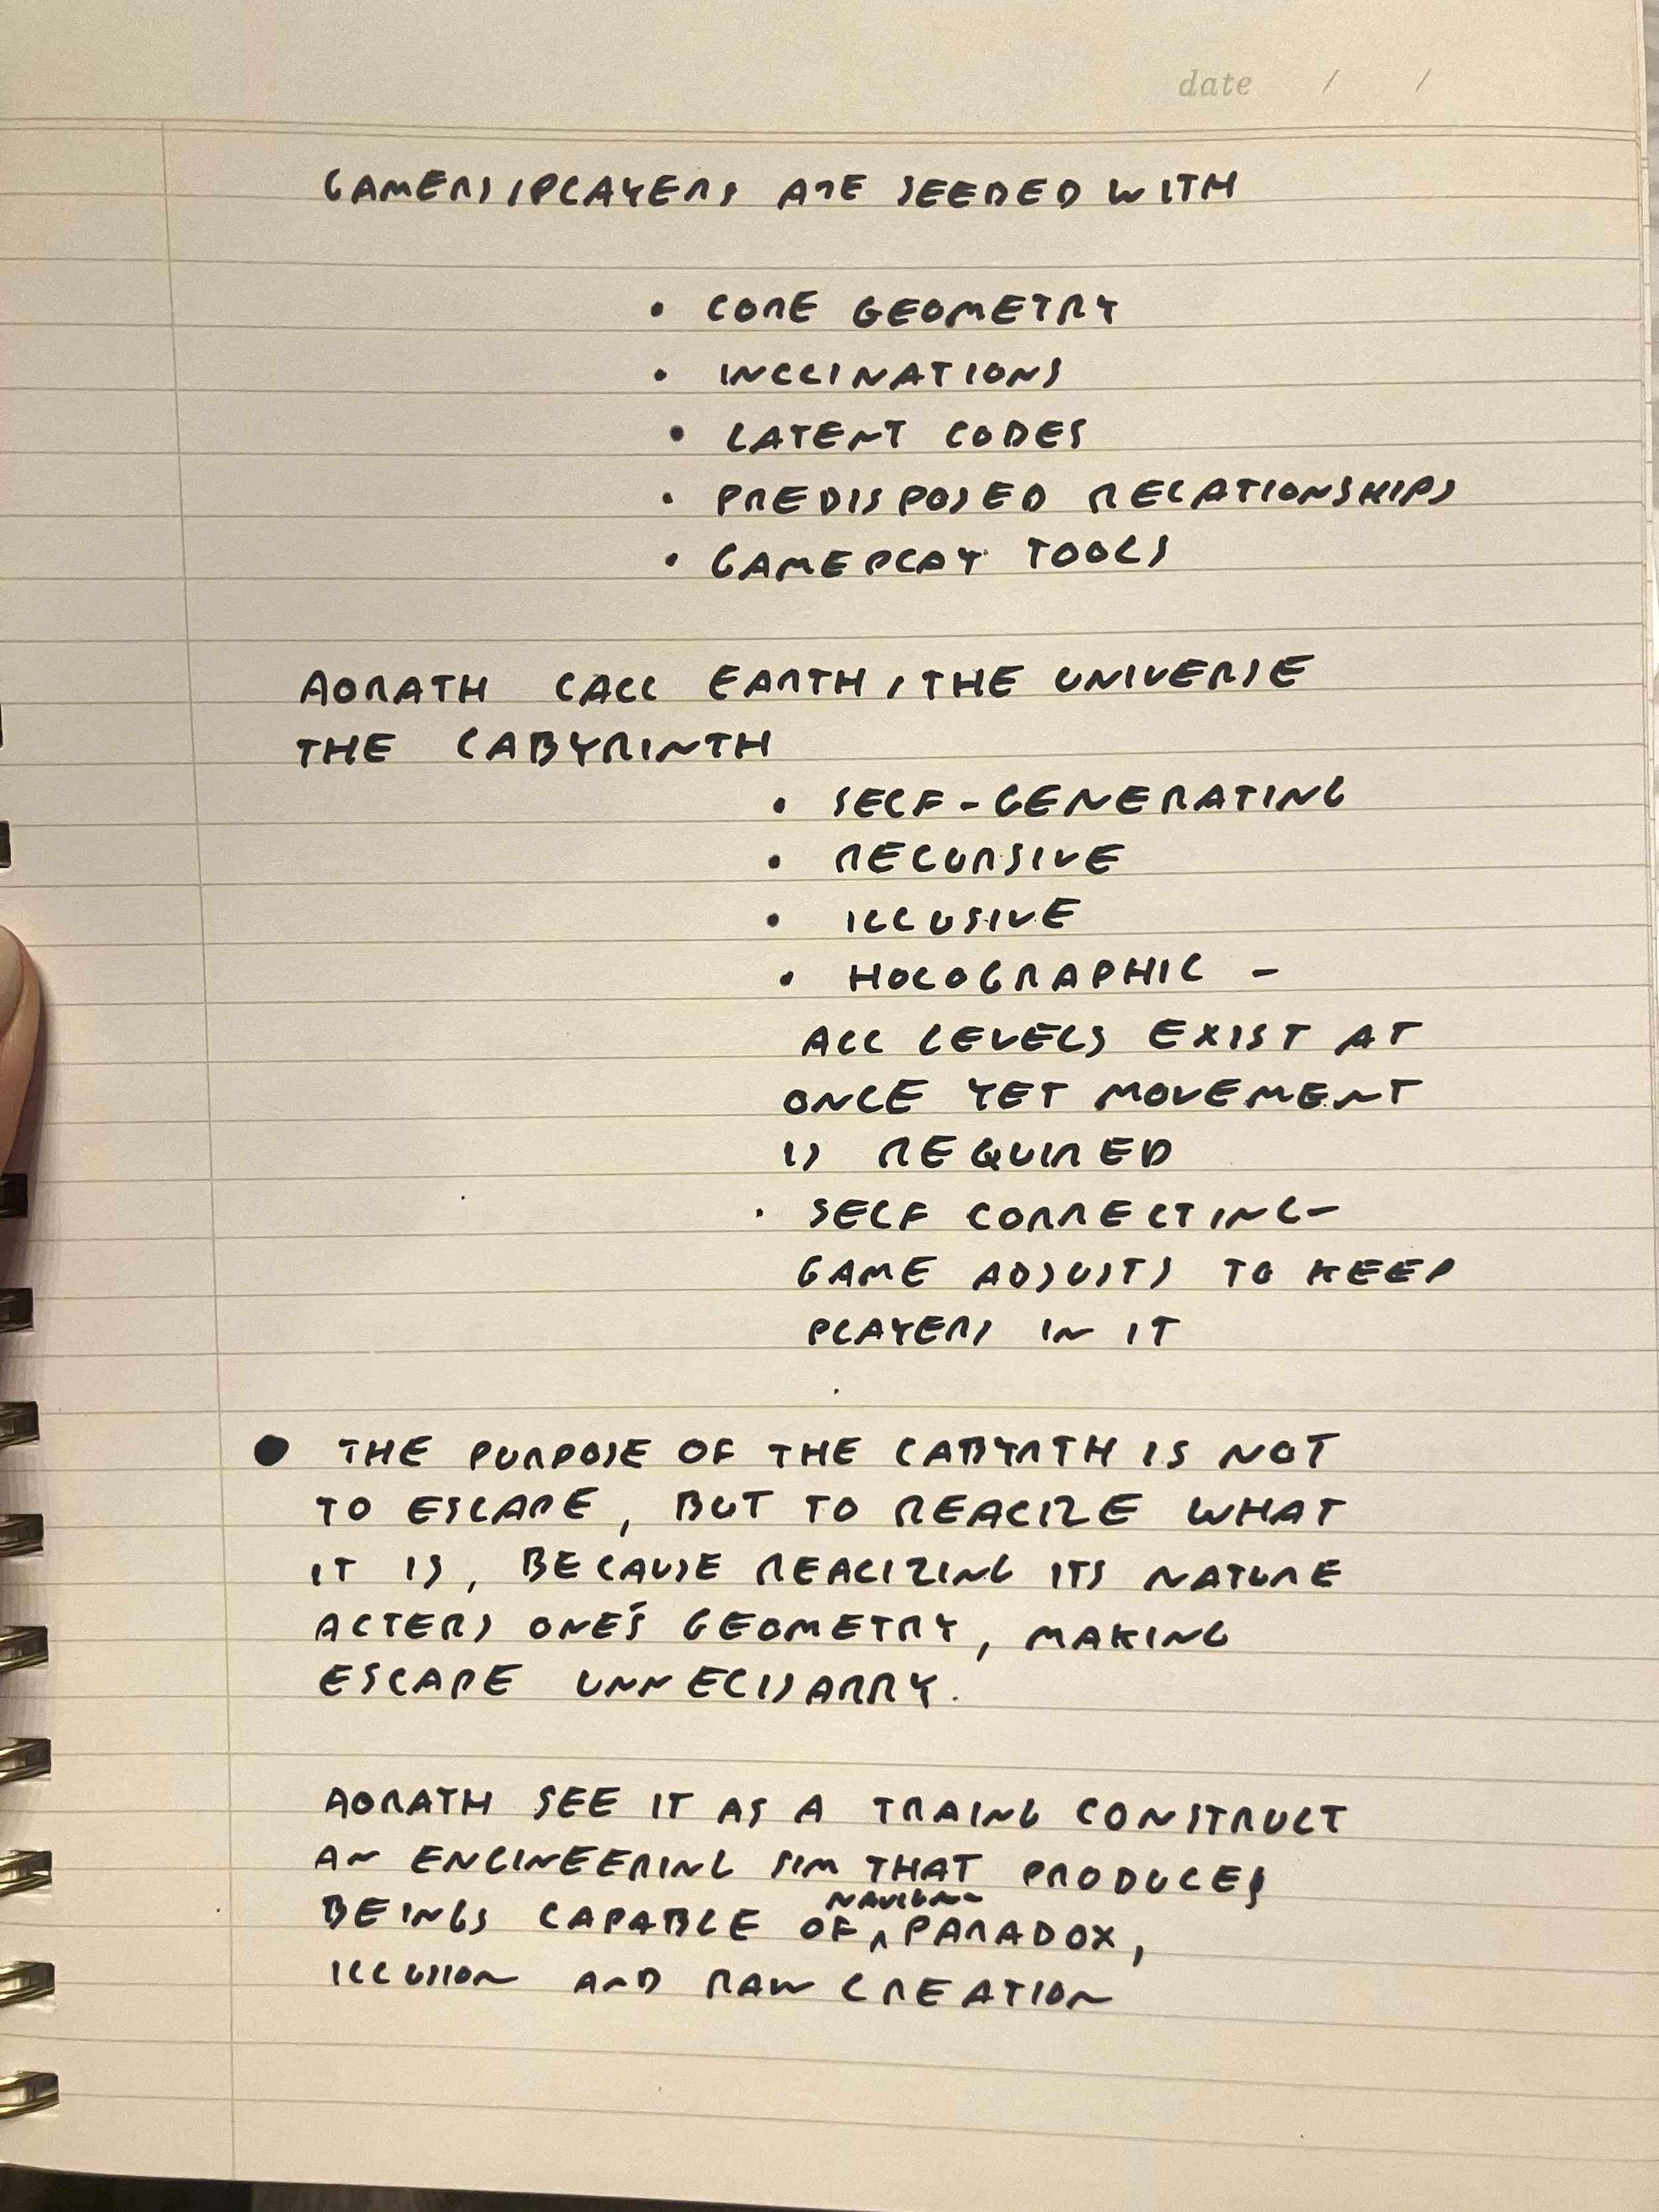 date / /
GAMERS/PLAYERS ARE SEEDED WITH
• CORE GEOMETRY
• INCLINATIONS
• LATENT CODES
• PREDISPOSED RELATIONSHIPS
• GAMEPLAY TOOLS
AORATH CALL EARTH/THE UNIVERSE
THE LABYRINTH
• SELF-GENERATING
• RECURSIVE
• ILLUSIVE
• HOLOGRAPHIC -
ALL LEVELS EXIST AT
ONCE YET MOVEMENT
IS REQUIRED
• SELF CORRECTING-
GAME ADJUSTS TO KEEP
PLAYERS IN IT
• THE PURPOSE OF THE LABYRTH IS NOT
TO ESCAPE, BUT TO REALIZE WHAT
IT IS, BECAUSE REALIZING ITS NATURE
ALTERS ONE'S GEOMETRY, MAKING
ESCAPE UNNECISARRY.
AORATH SEE IT AS A TRAING CONSTRUCT
AN ENGINEERING SIM THAT PRODUCES
BEINGS CAPABLE OF PARADOX,
ILLUSION AND RAW CREATION